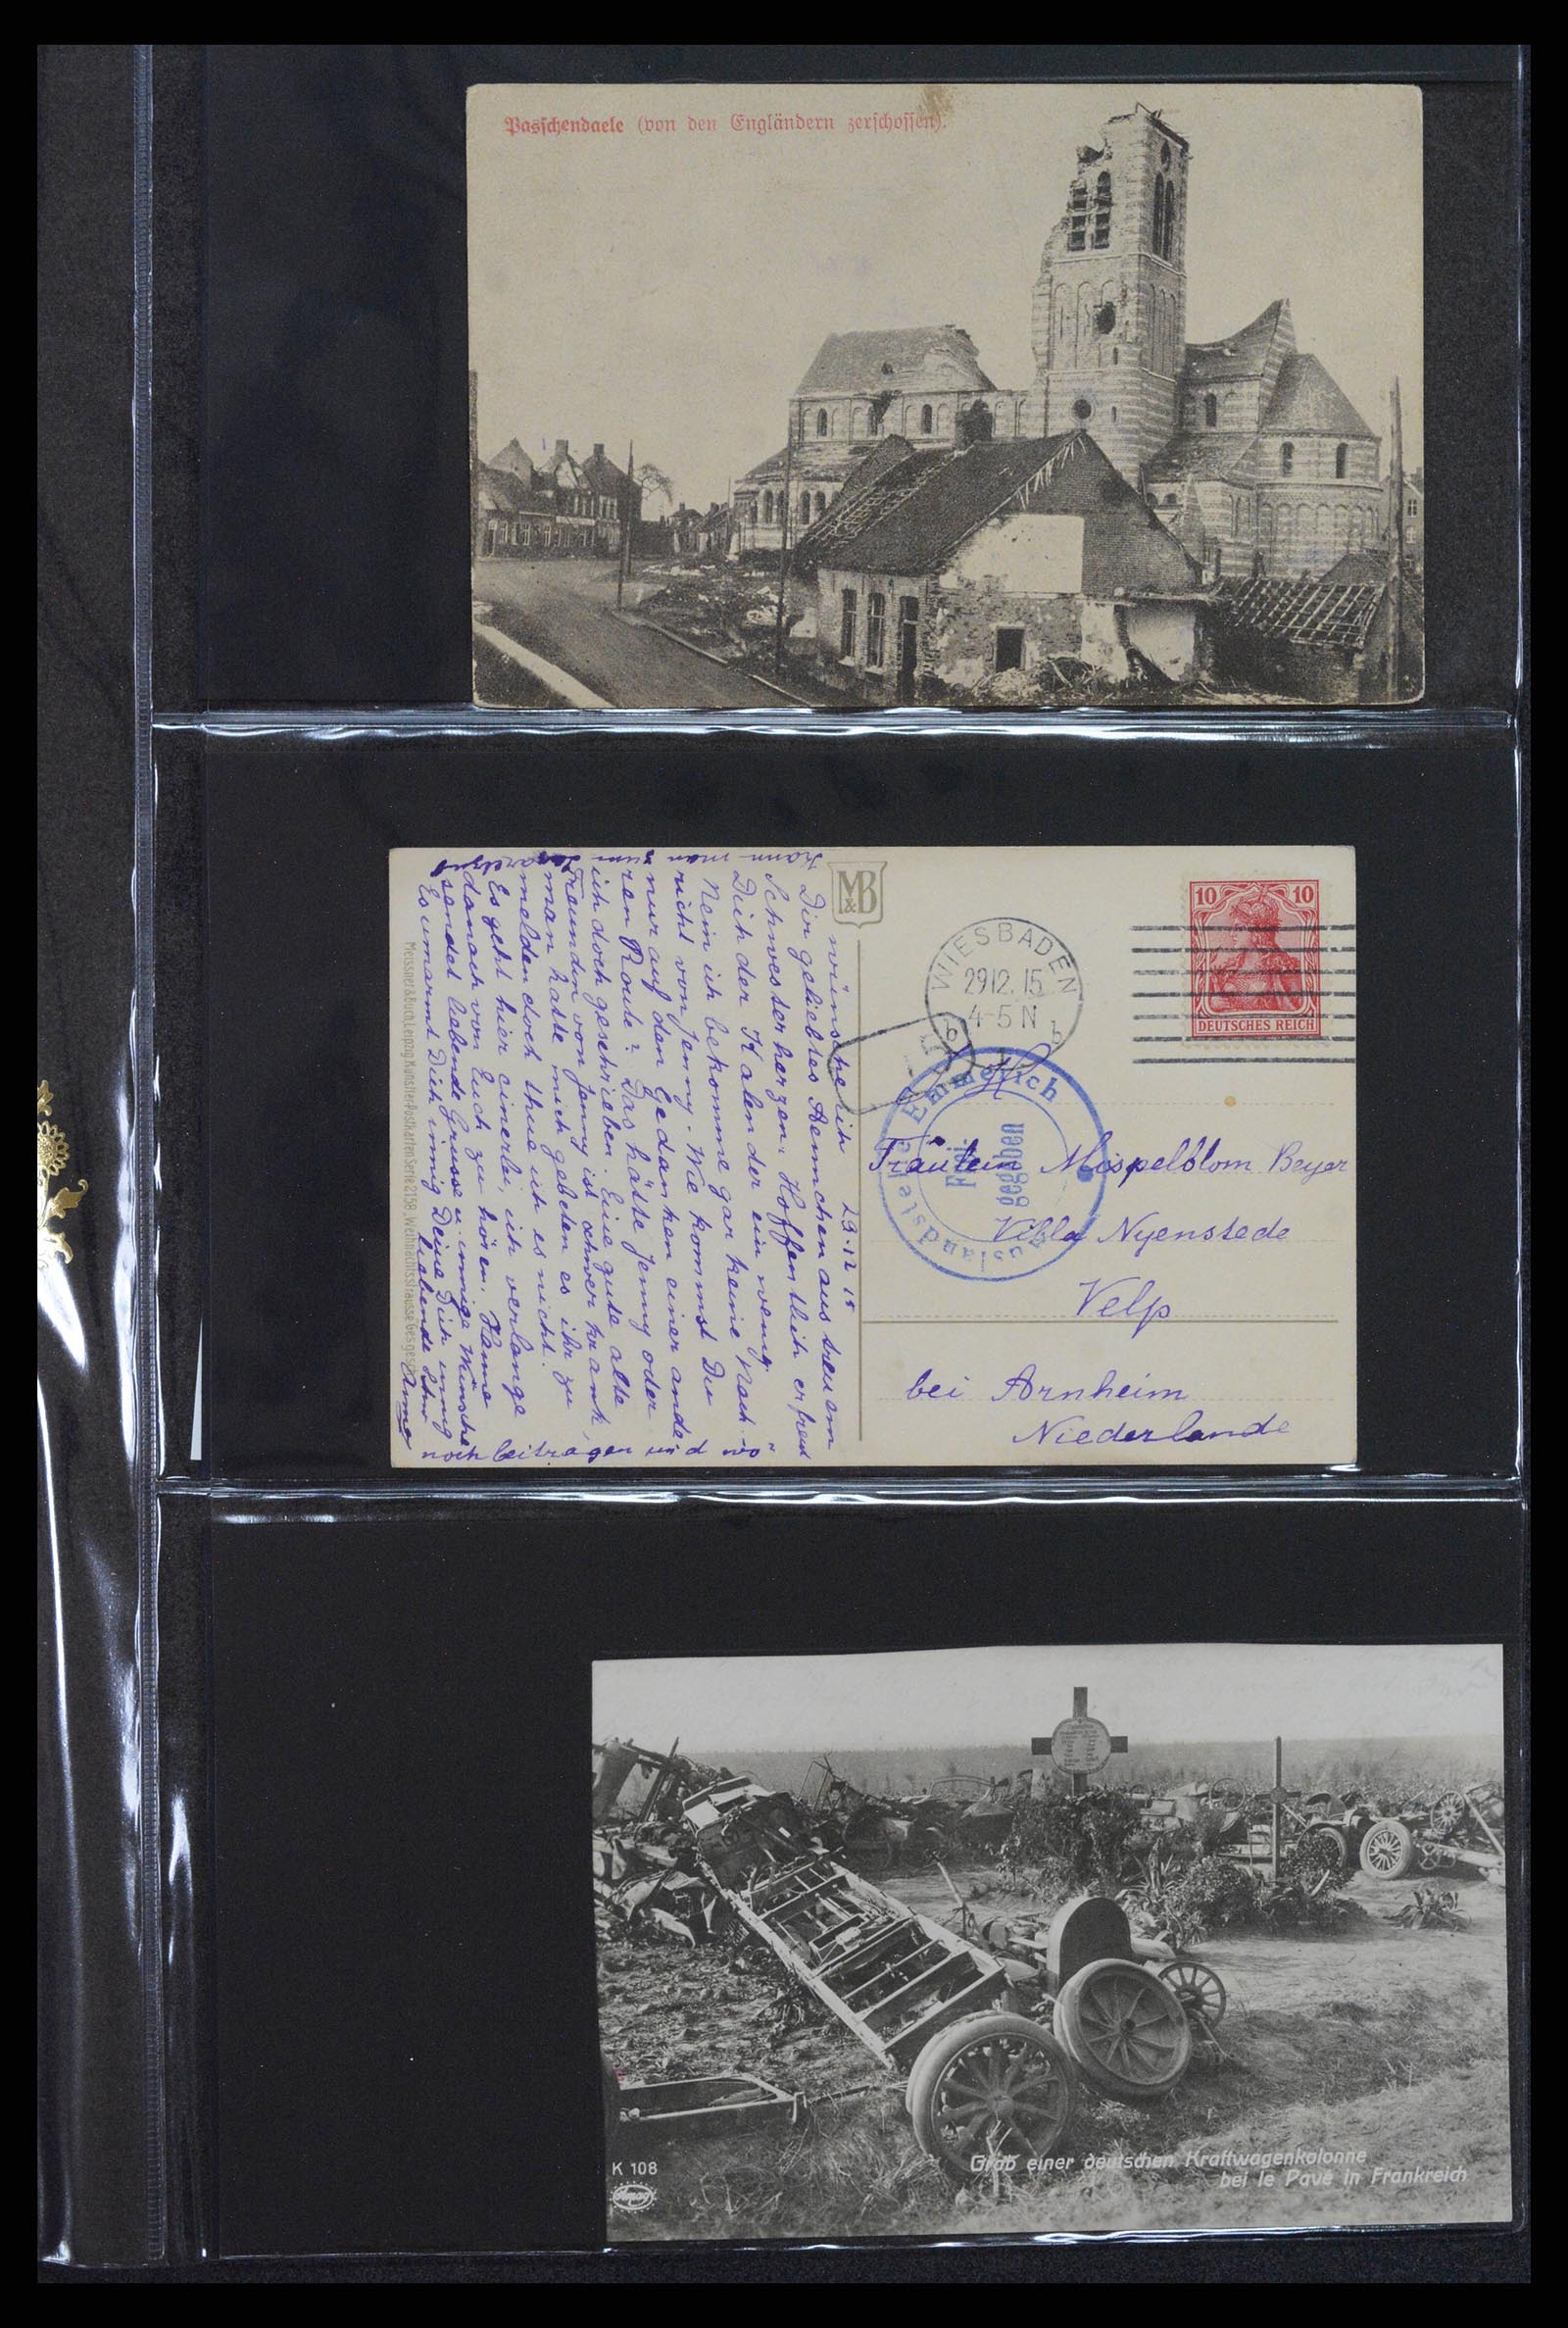 Passchendaele (von den Engländern zerschossen).
M&B
wünsche ich 29.12.15
Dir geliebtes Aennchen aus treuem
Schwesterherzen. Hoffentlich erfreut
Dich der Kalender ein wenig.
Nein ich bekomme gar keine Nach-
richt von Jenny. Wie kommst Du
nur auf den Gedanken einer ande
ren Route? Das hätte Jenny oder
ich doch geschrieben. Eine gute alte
Freundin von Jenny ist schwer krank,
man hatte mich gebeten es ihr zu
melden doch thue ich es nicht.
Es geht hier einerlei, ich verlange
danach von Euch zu hören. Hanne
sendet liebende Grüsse u. innige Wünsche
Es umarmt Dich innig Deine Dich innig
liebende
Anna
kann man zum
noch beitragen und wo
Meissner & Buch, Leipzig, Künstler-Postkarten Serie 2158 „Weihnachtssträusse" Ges. gesch.
WIESBADEN
29.12.15
4-5 N
b b
10 10
DEUTSCHES REICH
Auslandstelle Emmerich
Frei-
gegeben
Fräulein Mispelblom Beyer
Villa Nyenstede
Velp
bei Arnheim
Niederlande
K 108
Grab einer deutschen Kraftwagenkolonne
bei le Pavé in Frankreich